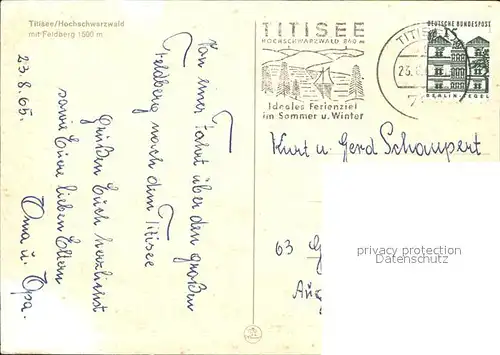 Titisee/Hochschwarzwald
mit Feldberg 1500 m
23.8.65.
Von einer Fahrt über den großen
Feldberg nach dem Titisee
Grüßen Euch herzlichst
sowie Eure lieben Eltern
Oma u. Opa.
TITISEE
HOCHSCHWARZWALD 860 m
Ideales Ferienziel
im Sommer u. Winter
TITIS
23.
DEUTSCHE BUNDESPOST
15
BERLIN-TEGEL
Kurt u. Gerd Schaupert
63
privacy protection